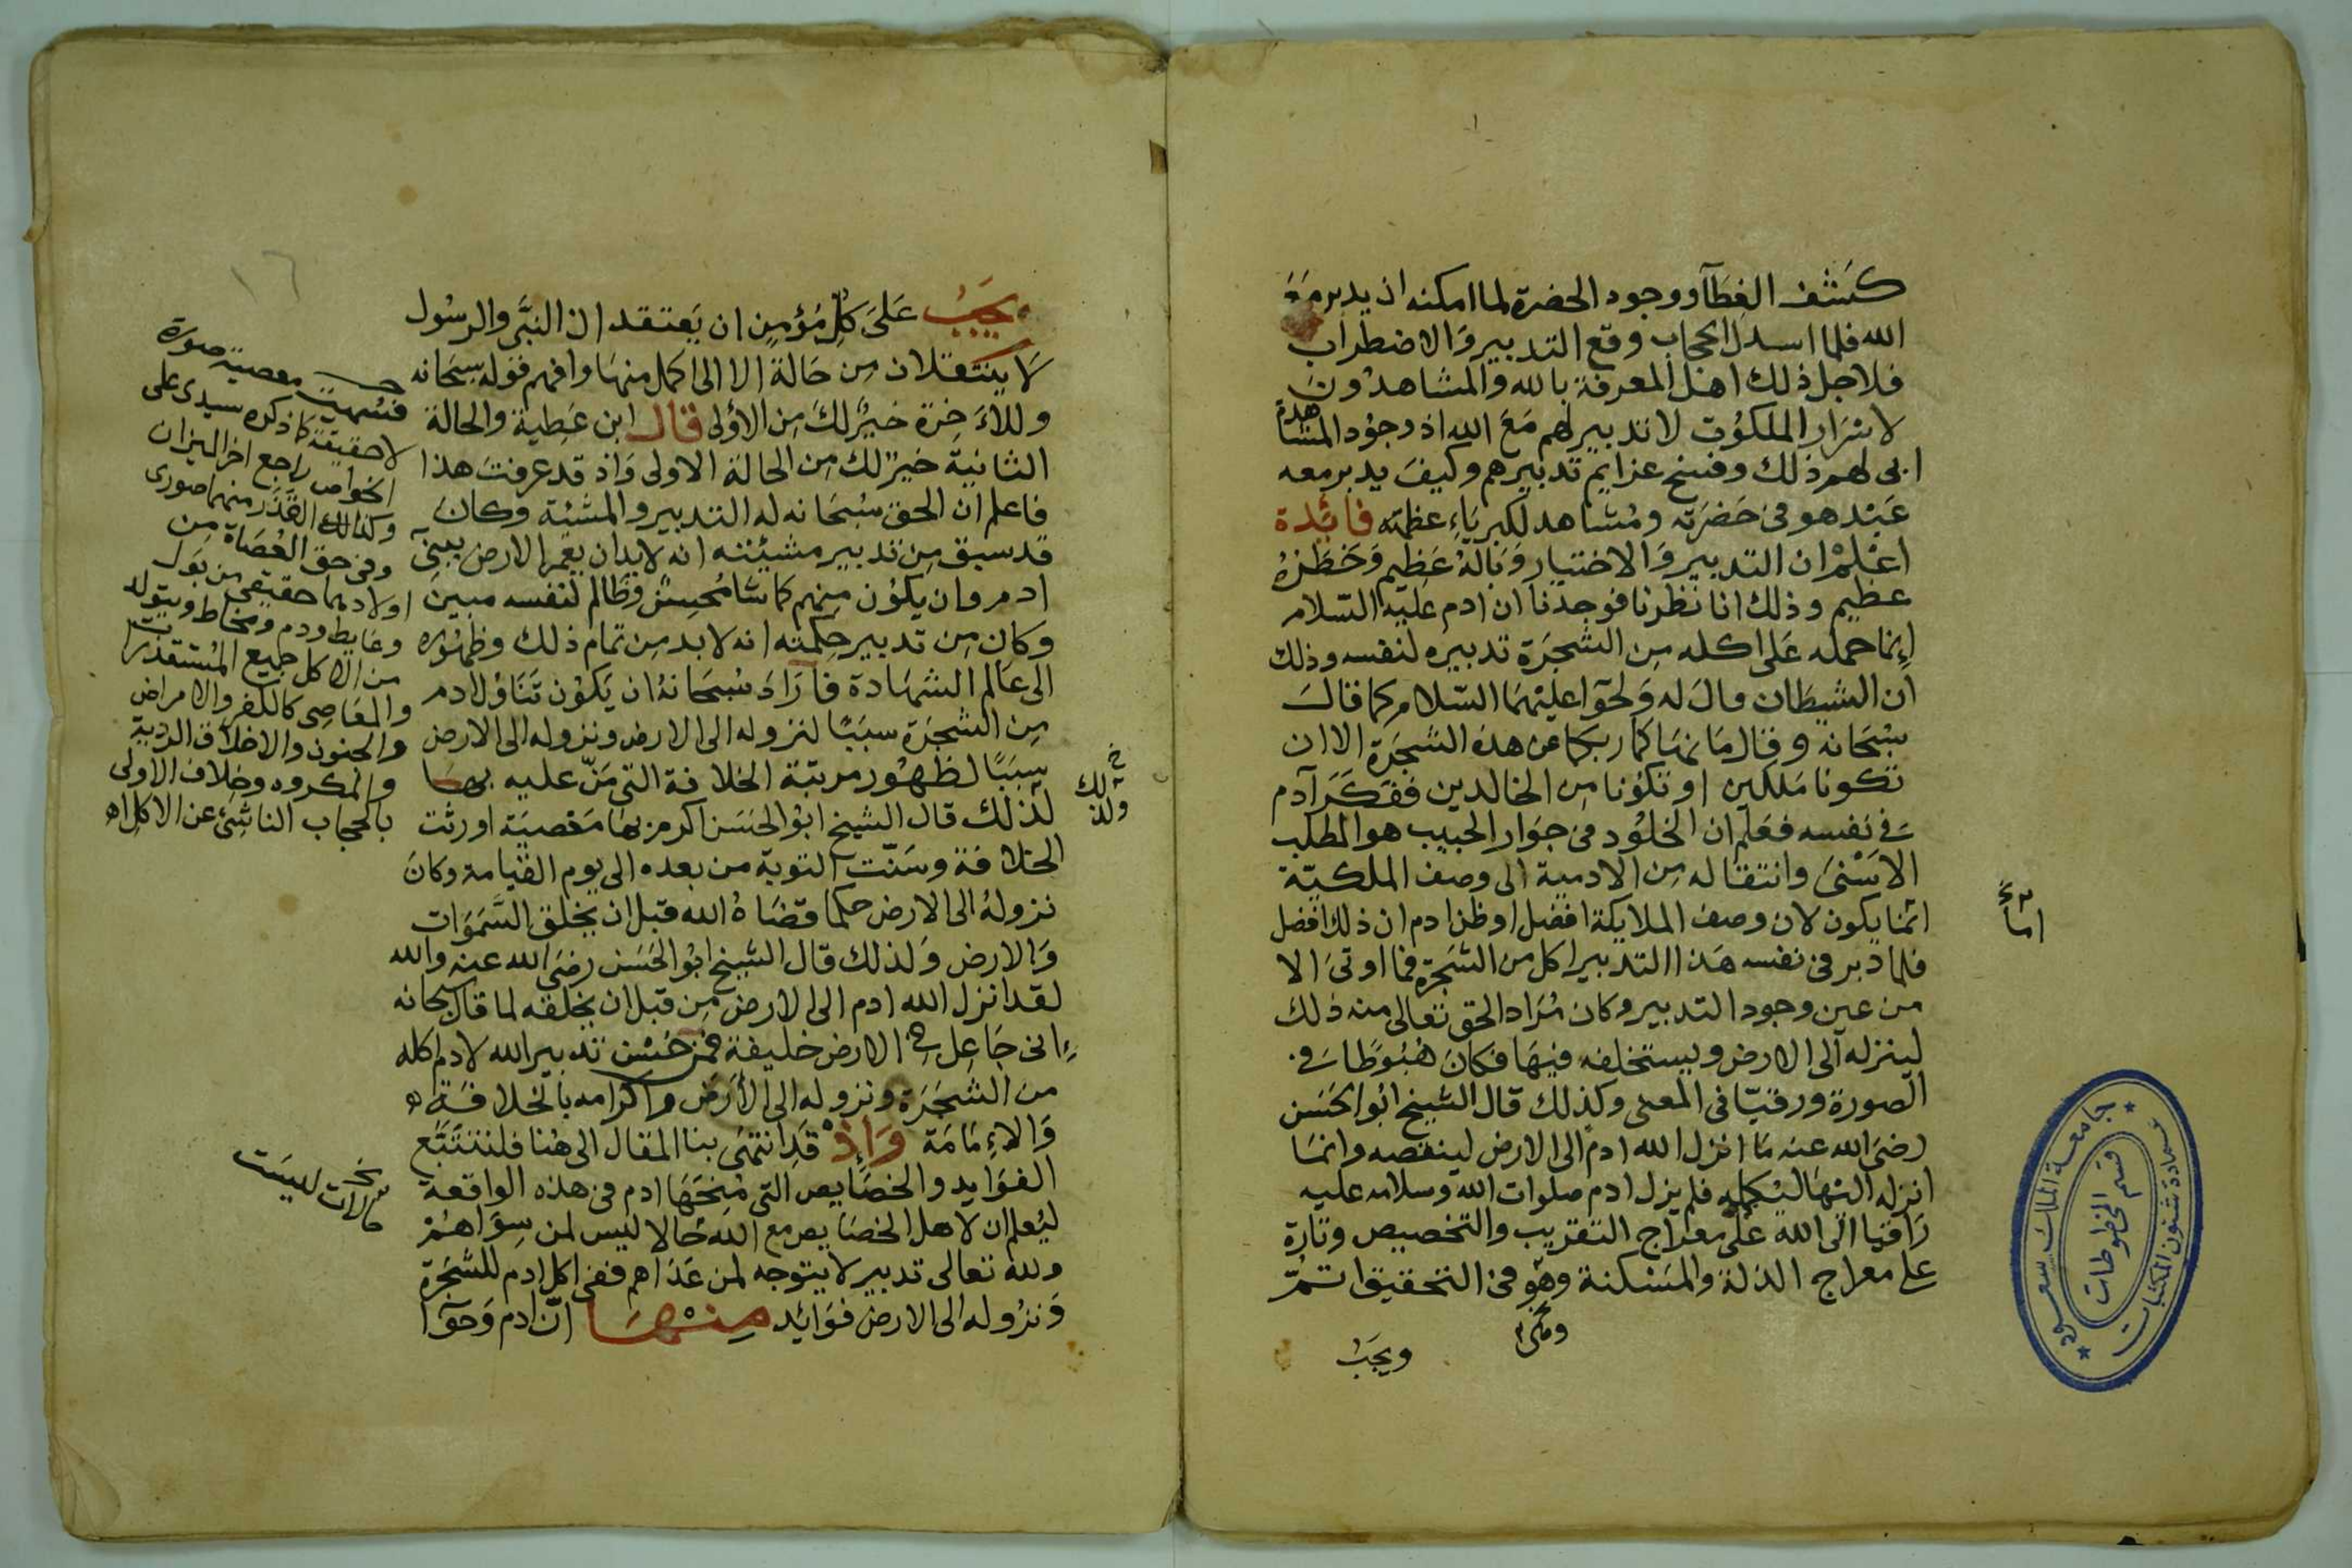 كَشف الغِطَآ ووجود الحضرة لما امكنه ان يدبر مَعَ
الله فلما اسدل الحجاب وقع التدبير وَالاضطراب
فلاجل ذلك اهل المعرفة بالله والمشاهدُونَ
لاسرَار الملكوُت لا تدبير لهم مَعَ الله اذ وجوُد المشاهدة
ابى لهم ذلك وفسخ عزايم تدبيرهم وكيفَ يدبر معه
عَبْد هو فى حَضرَته ومُشاهد لكبريَاءِ عظمته فايَدة
اعْلمْ ان التدبير وَالاختيار وَبَالهُ عَظِيم وَخطَرهُ
عظيم وذلك انا نظرنا فوجدنا ان ادم عليه السّلام
اِنما حمله عَلى اكله مِن الشجَرَة تدبيره لنفسه وذلك
ان الشيطَان قال له وَلحوّا عليْهمَا السّلام كما قالَ
سُبْحَانه وقال مَا نهَاكما ربكما عن هذه الشجَرَة الا ان
تكونا مَلكين او تكوُنا مِن الخالدين ففكَرَ آدم
فى نفسه فعَلم ان الخلوُد فى جوَار الحبيب هو المطلب
الاسْنىَ وانتقاله مِن الادمية الى وصف الملكيّة
انمَا يكون لان وصف الملايكة افضل او ظن ادم ان ذلك افضل
فلما دبر فى نفسه هَذا التدبير اكل من الشجَرة فما اوتىَ الا
من عين وجود التدبير وكان مُرَاد الحق تعالى منه ذلك
لينزله الى الارض ويستخلفه فيهَا فكانَ هُبُوطًا فى
الصورة ورقيّا فى المعنى وكذلك قال الشيخ ابُو الحَسَن
رضىَ الله عنه مَا انزل الله ادم الى الارض لينقصه وانمَا
انزله اليْهَا ليُكمله فلم يزل ادم صلوات الله وسلامه عليه
رَاقيا الى الله على معرَاج التقريب والتخصيص وتارة
على معراج الذلة والمسَكنة وهو فى التحقيق اتمّ
ويجَبُ
امَا
جامعة الملك سعود
عمادة شئون المكتبات
قسم المخطوطات
يجَبُ عَلىَ كُلِ مُؤمِنٍ ان يَعتقد ان النبَّى والرسُول
لاَ ينتقلان مِن حَالة الا الى اكمل منهَا وافهم قوله سبحَانه
وللاءَخِرَة خيرٌ لكَ مِن الاُولى قال ابن عَطِية والحالة
الثانية خيرٌ لك مِن الحالة الاولى وَاذ قد عرفتَ هذا
فاعلم ان الحق سُبحَانه له التدبير والمشئة وكانَ
قد سبق مِن تدبير مشيئته انه لابد ان يعمر الارض ببنى
ادم وان يكوُن منهم كما شا مُحسِنٌ وظالم لنفسه مبين
وكان مِن تدبير حِكمته انه لابد مِن تمام ذلك وظهُوره
الى عَالم الشهَادة فارَادَ سُبحَانهُ ان يَكوُن تَنَاوُل ادم
مِن الشجَرَة سبَبًا لنزوله الى الارض ونزوله الى الارض
سبَبًا لظهُور مرتبَة الخلافة التى مَنّ عليه بهَا
لذلك قال الشيخ ابوُ الحَسَن اكرم بهَا مَعْصيَة اورثت
الخلافة وسَنّت التوبة من بعده الى يوم القيامة وكانَ
نزولهُ الى الارض حكما قضَاهُ الله قبل ان يخلق السَّمَوَات
وَالارض وَلذلك قال الشيخ ابوُ الحَسَن رضىَ الله عنه والله
لقد انزل الله ادم الى الارض مِن قبل ان يخلقه لما قال سبحانه
اِنى جَاعِل فى الارض خليفة فمن حُسْن تدبير الله لادم اكله
من الشجَرَة ونزوله الى الاَرَض واكرامه بالخلافة
وَالاِمَامَة وَاِذْ قَد انتهىَ بنا المقال الى هُنا فلنتَتَبّع
الفوَايد والخصَايص التى مُنِحَهَا ادم فى هذه الواقعة
ليُعلم ان لاهل الخصَايص مع الله حَالا ليس لمن سِوَاهُمْ
ولله تعالى تدبير لا يتوجه لمن عَدَاهم ففى اكل ادم للشجَرَة
وَنزُوله الى الارض فوَائد منْهَا انّ ادم وَحوّا
ولذلك
فتسُميت معصية صورة
لا حقيقة كما ذكره سيدى على
الخواص راجع اخر الميزان
وكذلك القَذَر منهما صورى
وفى حق العُصَاة من
اولادهما حقيقى من بَول
وغايط ودم ومخاط ويتولد
من الاكل جميع المُستقذرات
والمعَاصِى كالكفر والامراض
والجنون والاخلاق الردية
والمكروه وخلاف الاولى
بالحجاب الناشِئ عن الاكل اه
حَالات ليسَت
١٦